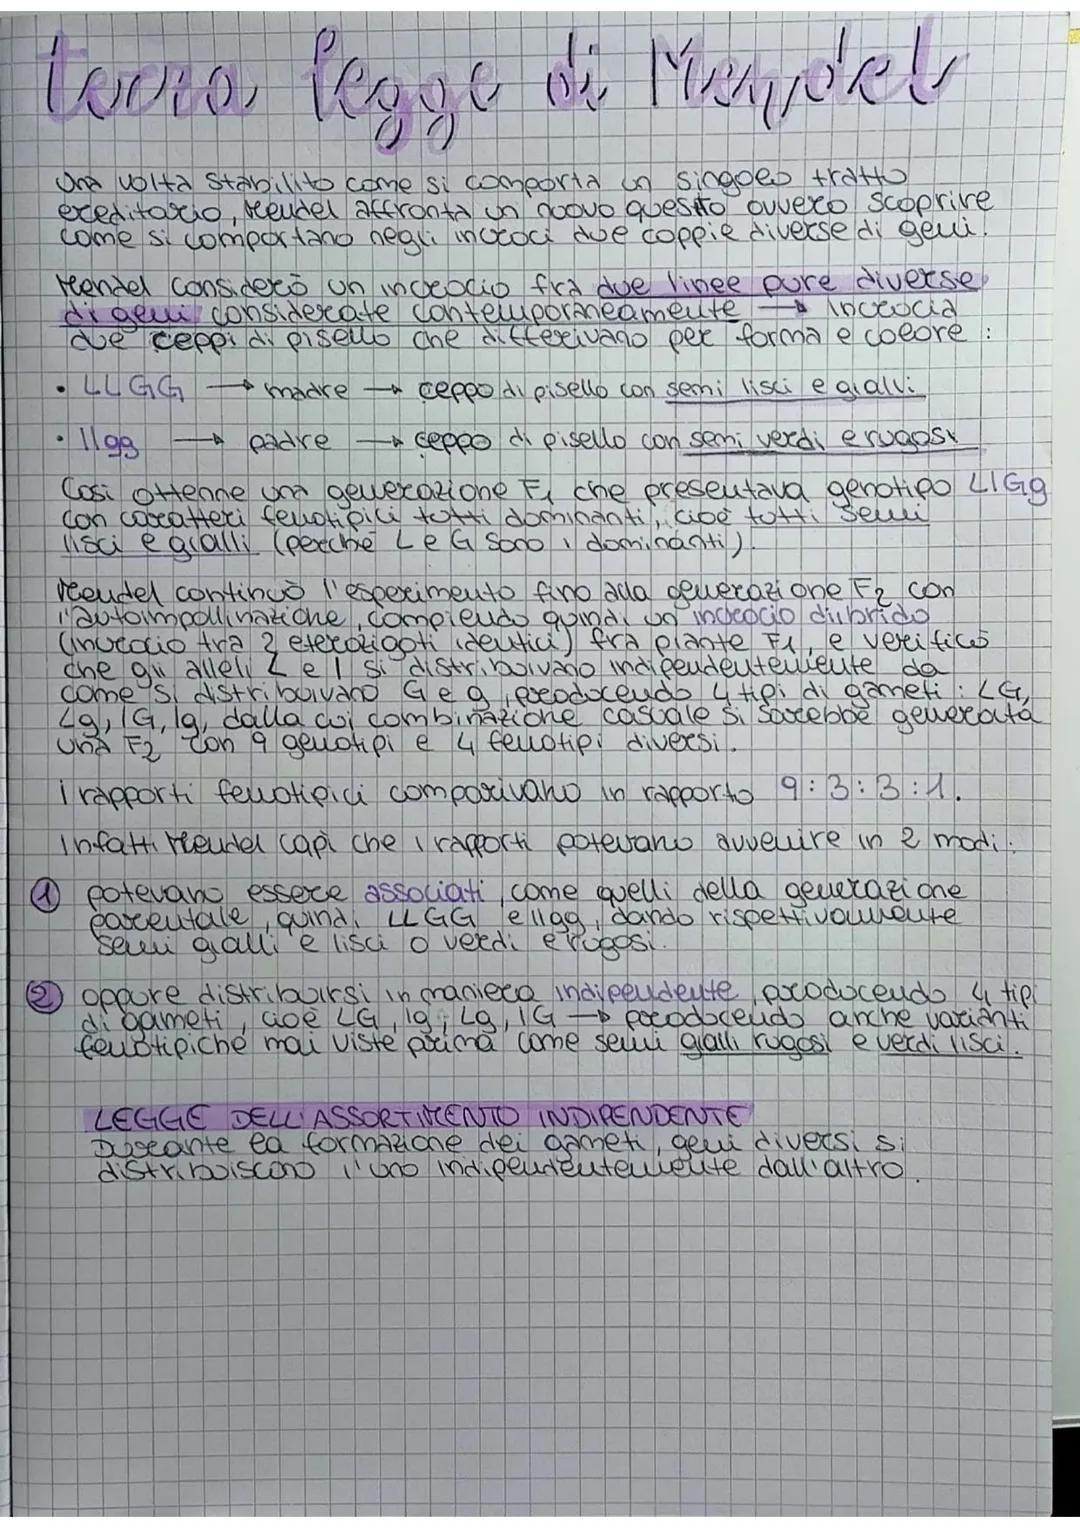 terza legge di Mendel
Una volta stabilito come si comporta un singolo tratto
ereditario, Mendel affronta un nuovo quesito ovvero scoprire
come si comportano negli incroci due coppie diverse di geni.
Mendel considerò un incrocio fra due linee pure diverse
di geni considerate contemporaneamente → incrocia
due ceppi di pisello che differivano per forma e colore :
• LLGG → madre → ceppo di pisello con semi lisci e gialli
• llgg → padre → ceppo di pisello con semi verdi e rugosi
Così ottenne una generazione F1 che presentava genotipo LlGg
con caratteri fenotipici tutti dominanti, cioè tutti semi
lisci e gialli (perché L e G sono i dominanti).
Mendel continuò l'esperimento fino alla generazione F2 con
l'autoimpollinazione, compiendo quindi un incrocio diibrido
(incrocio tra 2 eterozigoti identici) fra piante F1, e verificò
che gli alleli L e l si distribuivano indipendentemente da
come si distribuivano G e g, producendo 4 tipi di gameti : LG,
Lg, lG, lg, dalla cui combinazione casuale si sarebbe generata
una F2 con 9 genotipi e 4 fenotipi diversi.
i rapporti fenotipici comparivano in rapporto 9:3:3:1.
Infatti Mendel capì che i rapporti potevano avvenire in 2 modi:
1 potevano essere associati, come quelli della generazione
parentale, quindi LLGG e llgg, dando rispettivamente
semi gialli e lisci o verdi e rugosi.
2 oppure distribuirsi in maniera indipendente, producendo 4 tipi
di gameti, cioè LG, lg, Lg, lG → producendo anche varianti
fenotipiche mai viste prima come semi gialli rugosi e verdi lisci.
LEGGE DELL'ASSORTIMENTO INDIPENDENTE
Durante la formazione dei gameti, geni diversi si
distribuiscono l'uno indipendentemente dall'altro.